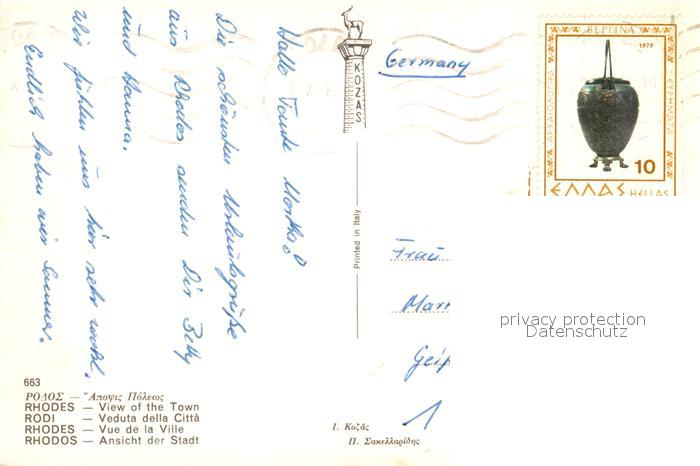 Hallo Tante Martha!
Die schönsten Urlaubsgrüße
aus Rhodos senden Dir Betty
und Hanna.
Wir fühlen uns hier sehr wohl.
Endlich haben wir Sonne.
KOZAS
Germany
ΒΕΡΓΙΝΑ
1979
ΑΡΧΑΙΟΛΟΓΙΚΑ
ΕΥΡΗΜΑΤΑ
10
ΕΛΛΑΣ HELLAS
Printed in Italy
Frau
privacy protection
Datenschutz
1
663
ΡΟΔΟΣ — Ἄποψις Πόλεως
RHODES — View of the Town
RODI — Veduta della Città
RHODES — Vue de la Ville
RHODOS — Ansicht der Stadt
Ι. Κοζᾶς
Π. Σακελλαρίδης